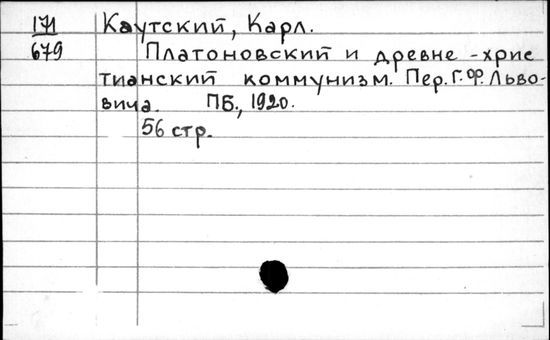 171 Каутский, Карл.
679 Платоновский и древне-хрис
тианский коммунизм. Пер. Г. Ф. Льво-
вича. ПБ., 1920.
56 стр.